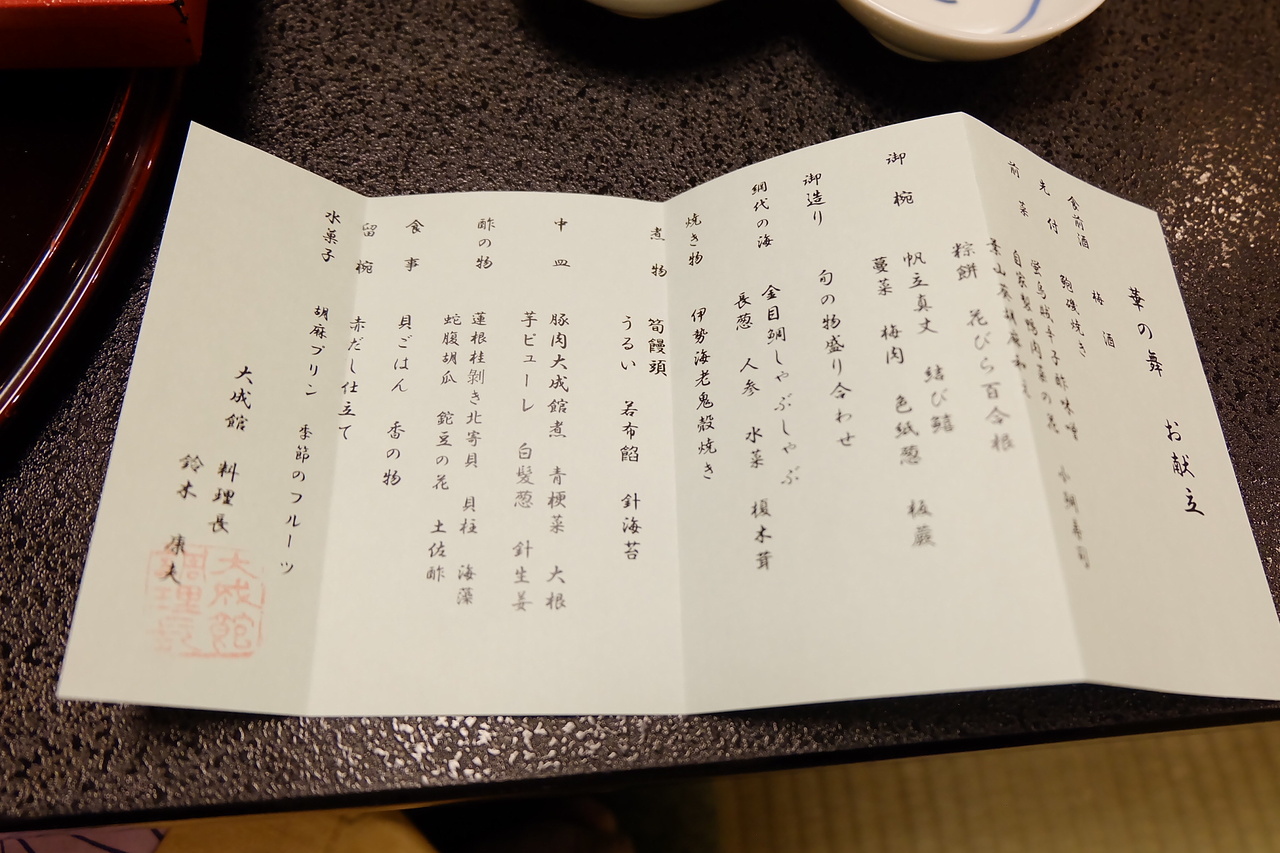 華の舞 お献立
食前酒 梅酒
先付 鮑磯焼き
前菜 蛍烏賊辛子酢味噌 小鯛寿司
自家製鴨肉菜の花
葉山葵胡麻和え
粽餅 花びら百合根
御椀 帆立真丈 結び鱚 板蕨
蔓菜 梅肉 色紙葱
御造り 旬の物盛り合わせ
網代の海 金目鯛しゃぶしゃぶ
長葱 人参 水菜 榎木茸
焼き物 伊勢海老鬼殻焼き
煮物 筍饅頭
うるい 若布餡 針海苔
中皿 豚肉大成館煮 青梗菜 大根
芋ピューレ 白髪葱 針生姜
酢の物 蓮根桂剝き北寄貝 貝柱 海藻
蛇腹胡瓜 鉈豆の花 土佐酢
食事 貝ごはん 香の物
留椀 赤だし仕立て
水菓子 胡麻プリン 季節のフルーツ
大成館 料理長
鈴木 康夫
大成館
調理長